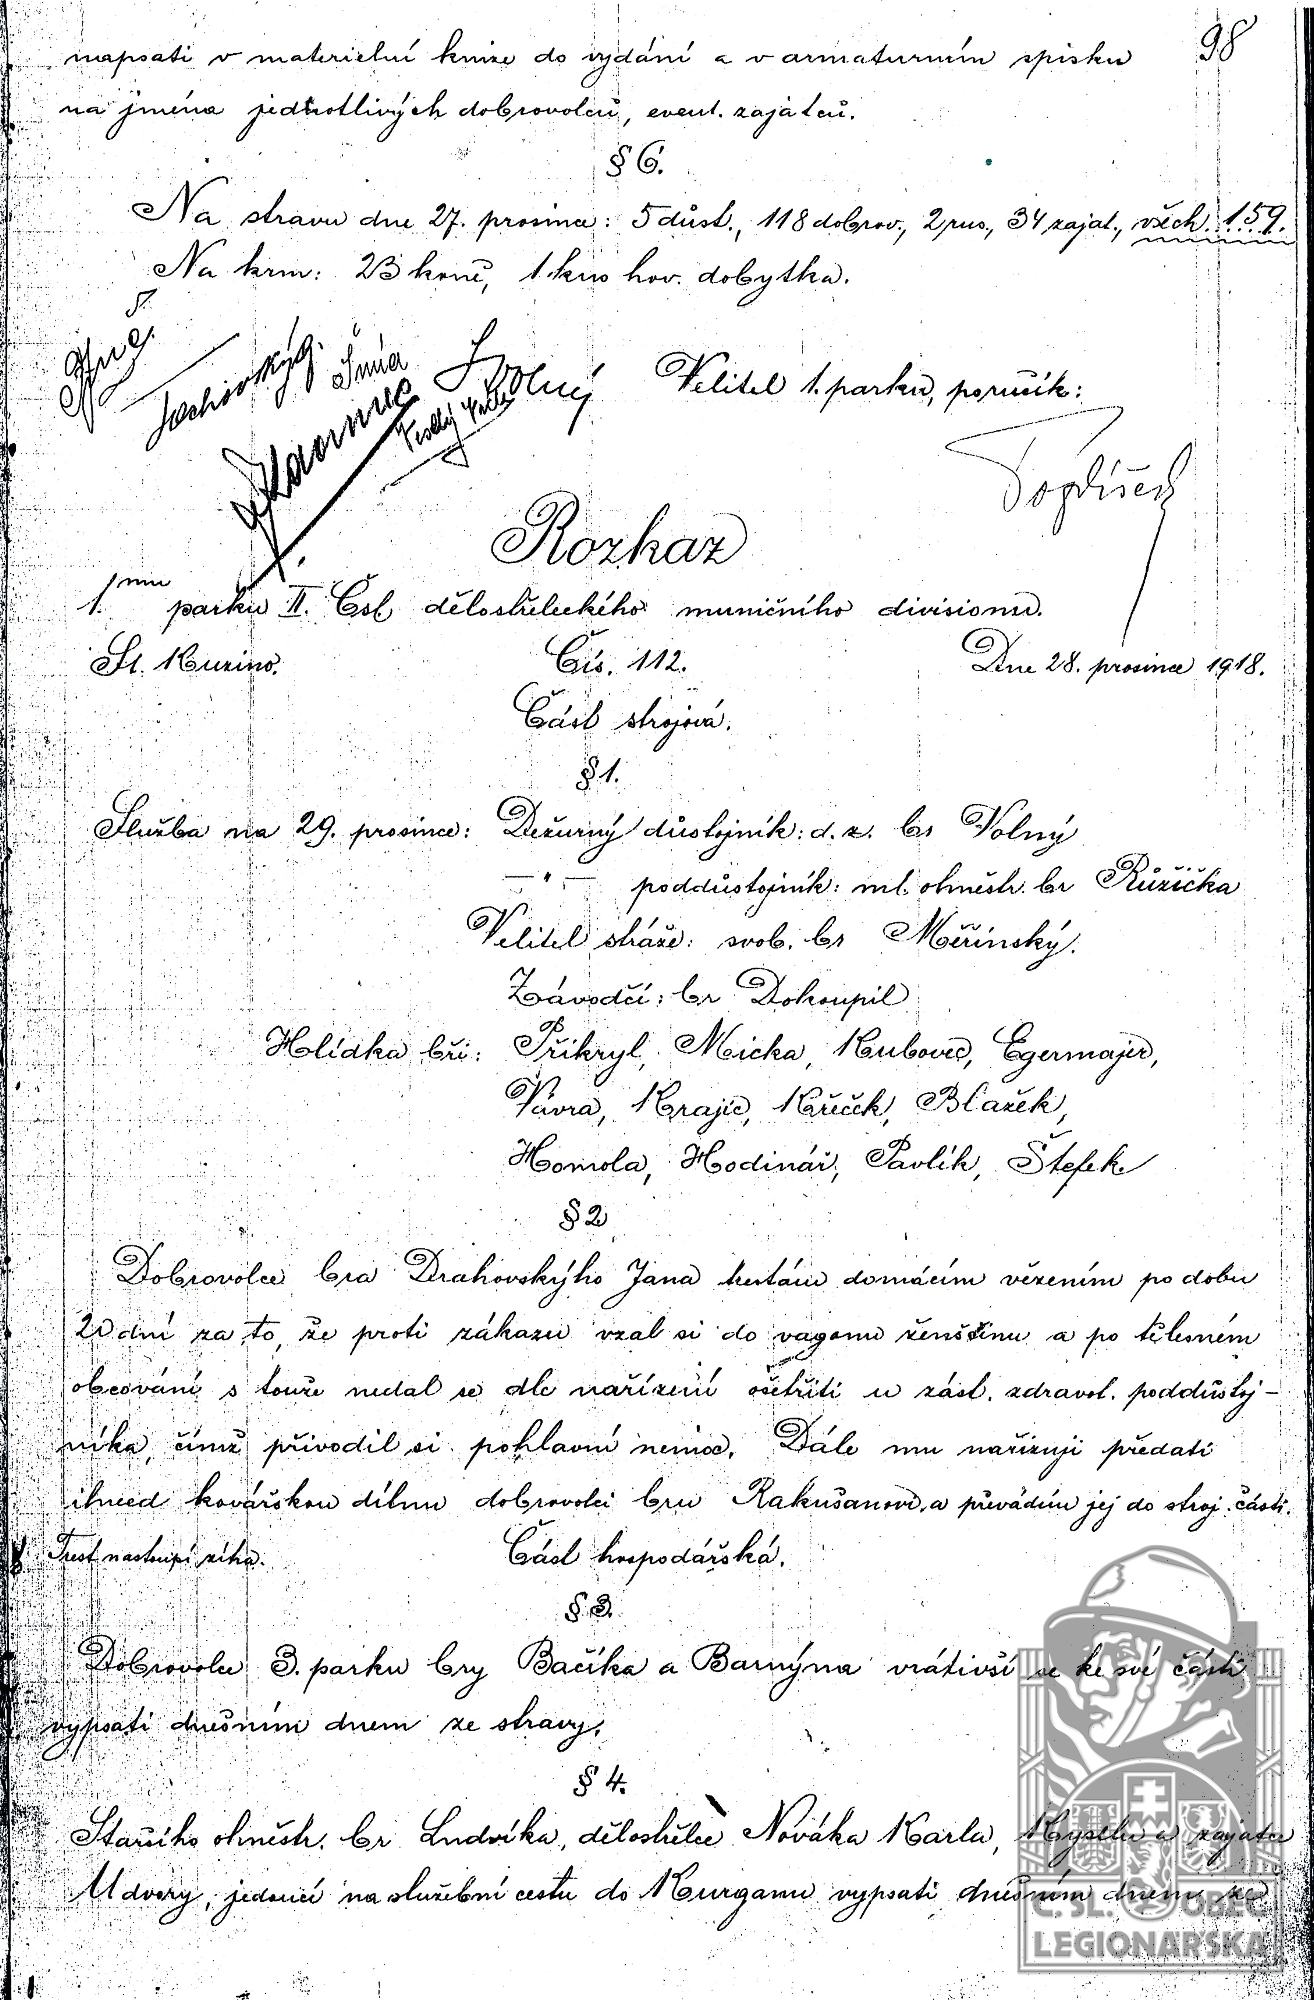 98
napsati v materielní knize do vydání a v armaturním spisku
na jména jednotlivých dobrovolců, event. zajatců.
§ 6.
Na stravu dne 27. prosince: 5 důst., 118 dobrov., 2 rus., 34 zajat., všech. 159.
Na krm: 23 koně, 1. kus hov. dobytka.
Velitel 1. parku, poručík:
Volný
Rozkaz
1.mu parku II. Čsl dělostřeleckého muničního divisionu.
St. Kuzino. Čís. 112. Dne 28. prosince 1918.
Část strojová.
§ 1.
Služba na 29. prosince: Dežurný důstojník: d. z. br Volný
—"— poddůstojník: ml. ohněstr. br Růžička
Velitel stráže: svob. br Měřínský.
Závodčí: br Dokoupil
Hlídka bři: Přikryl, Micka, Kubovec, Egermajer,
Vávra, Krajíc, Křeček, Blažek,
Homola, Hodinář, Pavlík, Štefek
§ 2
Dobrovolce bra Drahovskýho Jana trestám domácím vězením po dobu
20 dní za to, že proti zákazu vzal si do vagonu ženštinu a po tělesném
obcování s touže nedal se dle nařízení ošetřiti u zást. zdravot. poddůstoj-
níka, čímž přivodil si pohlavní nemoc. Dále mu nařizuji předati
ihned kovářskou dílnu dobrovolci bru Rakušanovi, a převádím jej do stroj. části.
Trest nastoupí zítra. Část hospodářská.
§ 3.
Dobrovolce 3. parku bry Bačíka a Barnýna vrátivší se ke své části
vypsati dnešním dnem ze stravy.
§ 4.
Staršího ohněstr. br Ludvíka, dělostřelce Nováka Karla, Kyselu a zajatce
Udvory, jedoucí na služební cestu do Kurganu vypsati dnešním dnem ze
Č. SL. OBEC
LEGIONÁŘSKÁ